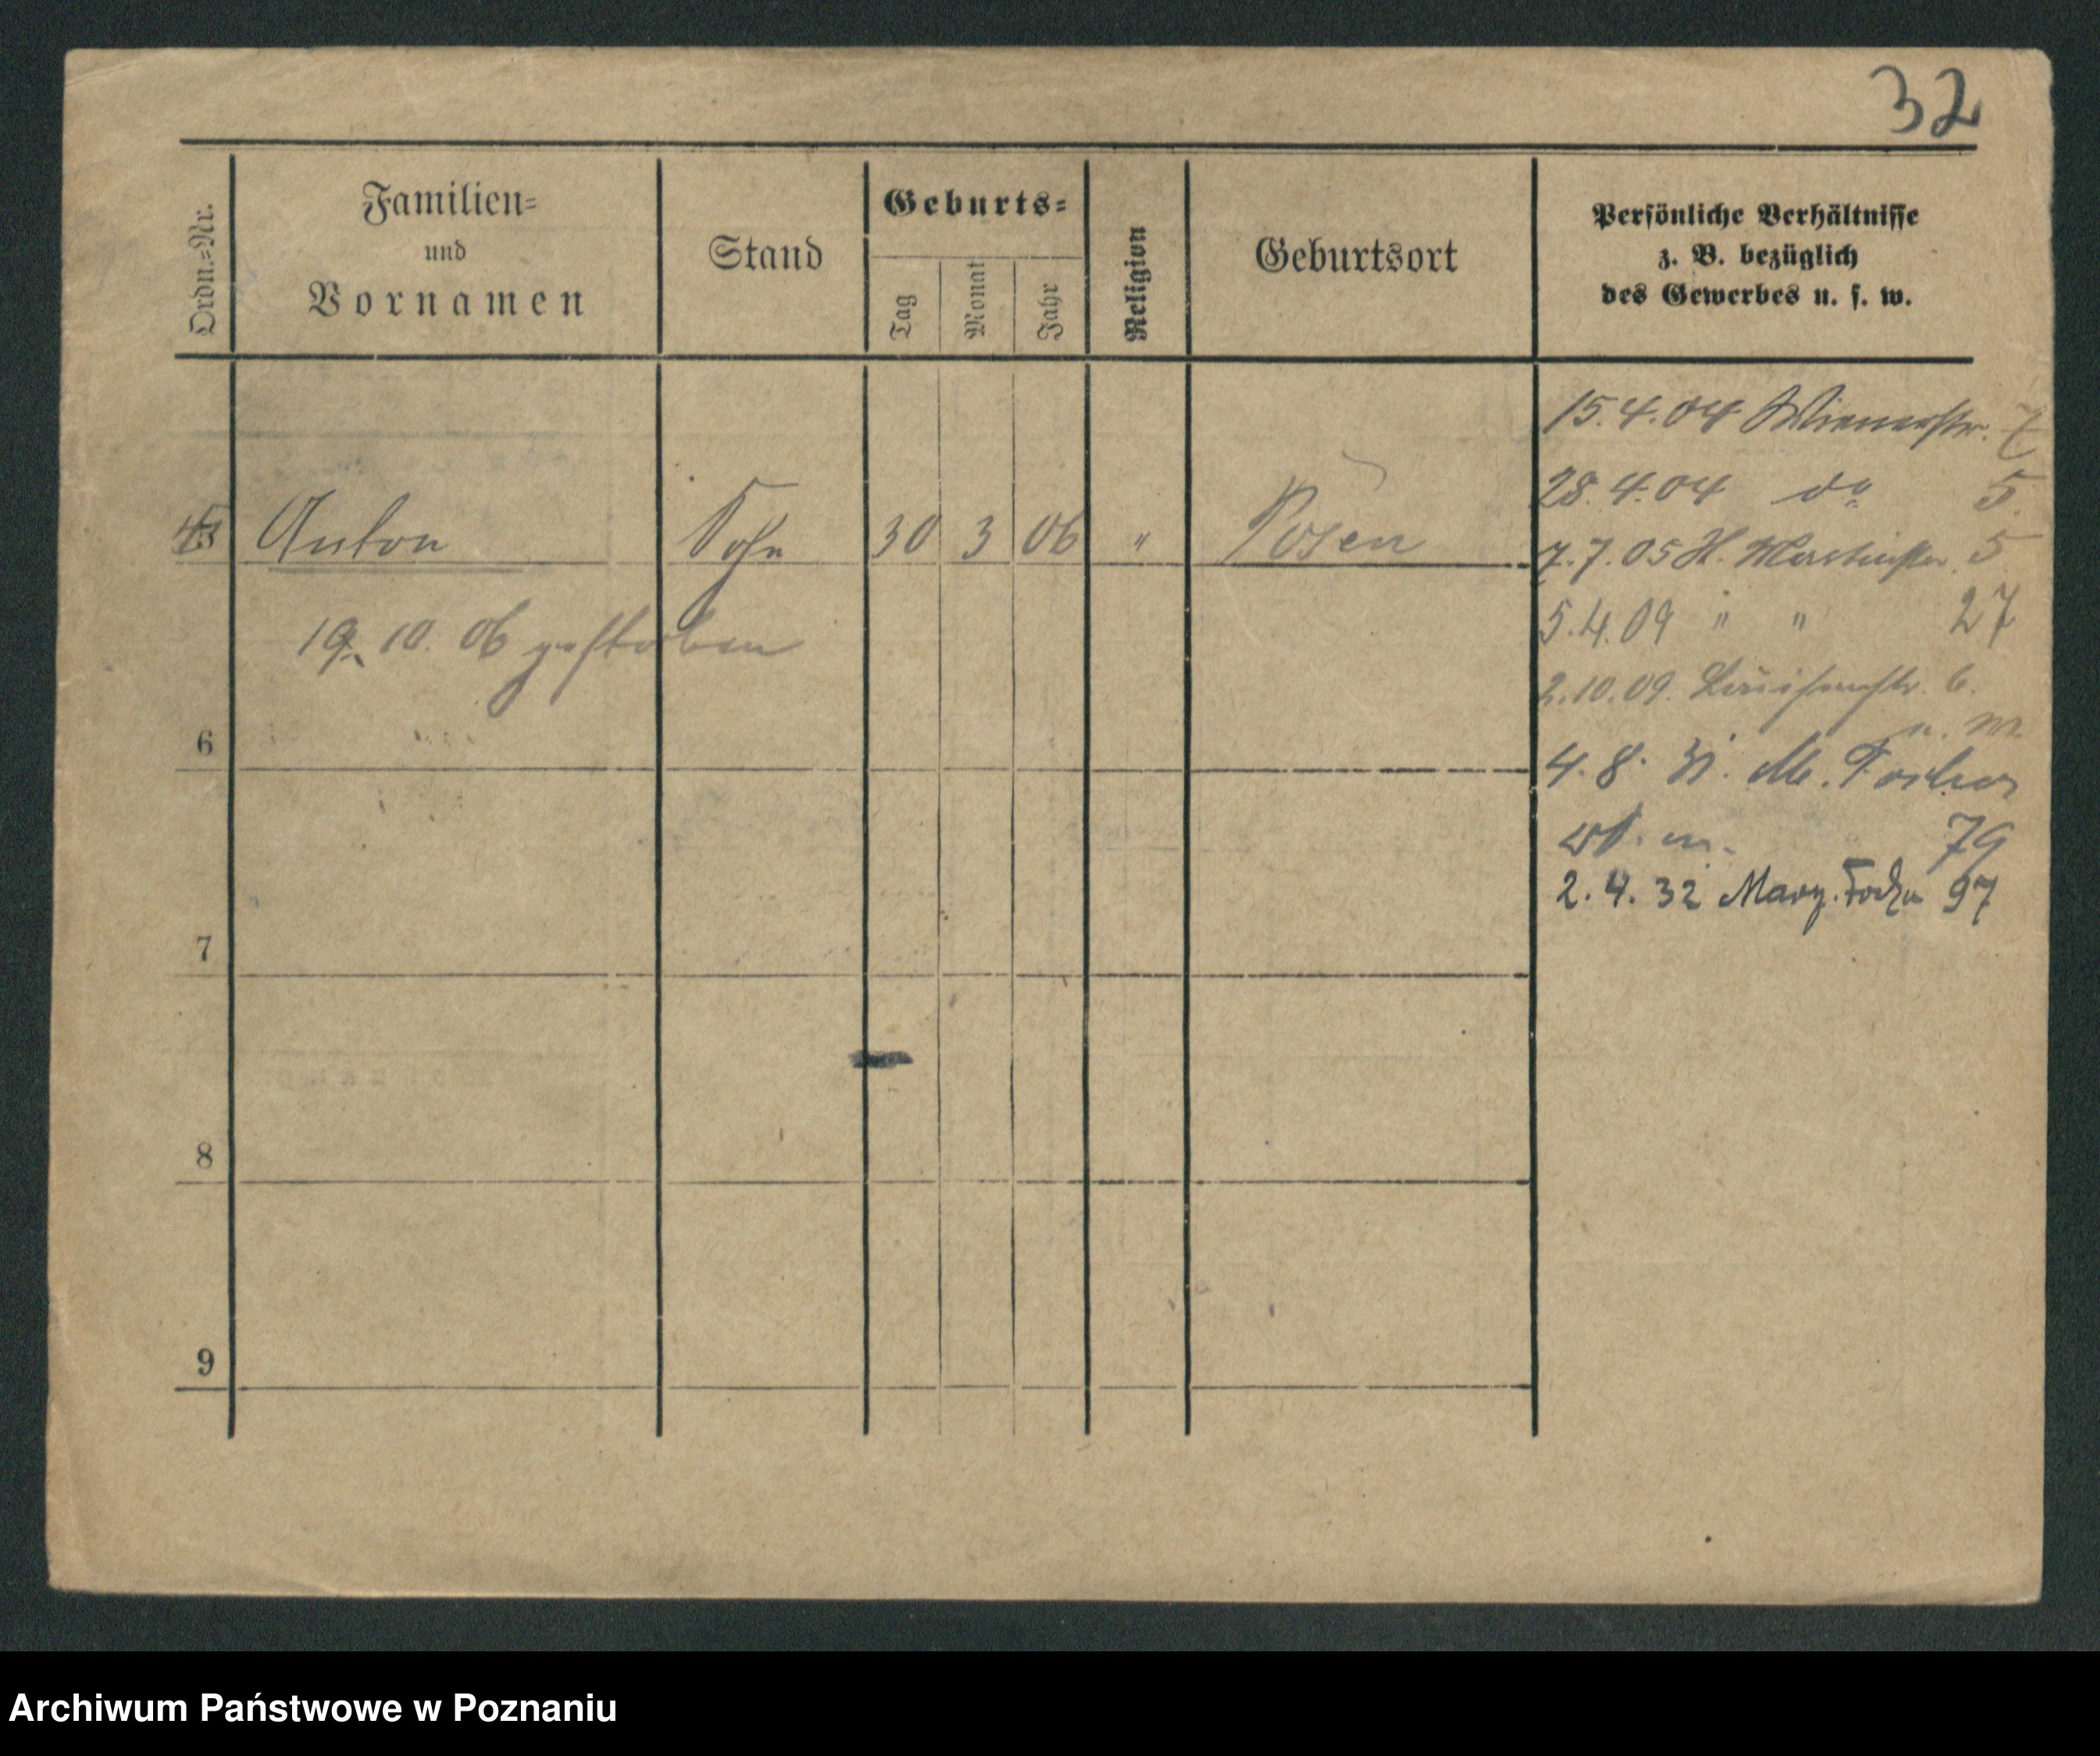 32
Ordn.=Nr.
Familien=
und
Vornamen
Stand
Geburts=
Tag
Monat
Jahr
Religion
Geburtsort
Persönliche Verhältnisse
z. B. bezüglich
des Gewerbes u. s. w.
15.4.04 Wienerstr. 7
28.4.04 do 5.
Anton Sohn 30 3 06 " Posen
7.7.05 H. Martinstr. 5
19. 10. 06 gestorben
5.4.09 " " 27
2.10.09. Luisenstr. 6.
u. m.
6
4. 8. 31. M. Focha
m. 79
2. 4. 32 Marz. Focha 97
7
8
9
Archiwum Państwowe w Poznaniu